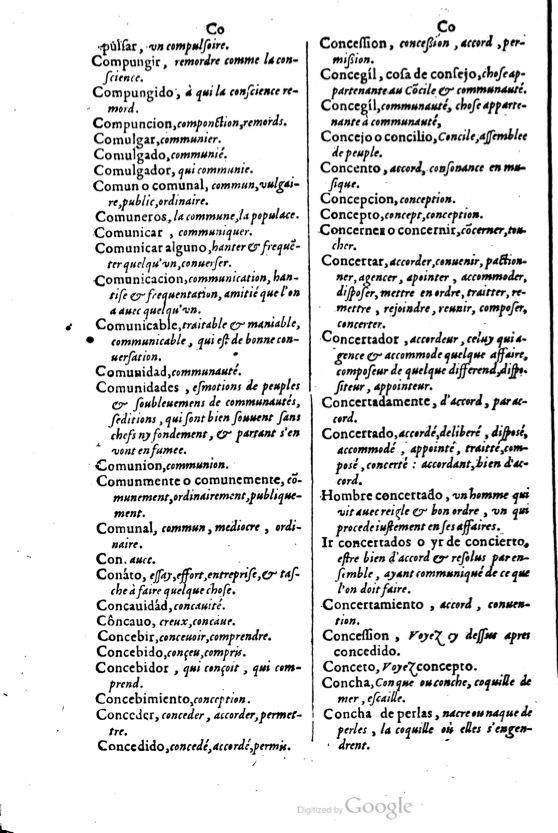 Co
pulsar, vn compulsoire.
Compungir, remordre comme la con-
science.
Compungido, à qui la conscience re-
mord.
Compuncion, componction, remords.
Comulgar, communier.
Comulgado, communié.
Comulgador, qui communie.
Comun o comunal, commun, vulgai-
re, public, ordinaire.
Comuneros, la commune, la populace.
Comunicar, communiquer.
Comunicar alguno, hanter & frequẽ-
ter quelqu'vn, conuerser.
Comunicacion, communication, han-
tise & frequentation, amitié que l'on
a auec quelqu'vn.
Comunicable, traitable & maniable,
communicable, qui est de bonne con-
uersation.
Comunidad, communauté.
Comunidades, esmotions de peuples
& soubleuemens de communautés,
seditions, qui sont bien souuent sans
chefs ny fondement, & partant s'en
vont en fumee.
Comunion, communion.
Comunmente o comunemente, cõ-
munement, ordinairement, publique-
ment.
Comunal, commun, mediocre, ordi-
naire.
Con. auec.
Conáto, essay, effort, entreprise, & tas-
che à faire quelque chose.
Concauidad, concauité.
Côncauo, creux, concaue.
Concebir, conceuoir, comprendre.
Concebido, conçeu, compris.
Concebidor, qui conçoit, qui com-
prend.
Concebimiento, conception.
Conceder, conceder, accorder, permet-
tre.
Concedido, concedé, accordé, permis.
Co
Concession, concession, accord, per-
mission.
Concegil, cosa de consejo, chose ap-
partenante au Cõcile & communauté.
Concegil, communauté, chose apparte-
nante à communauté,
Concejo o concilio, Concile, assemblee
de peuple.
Concento, accord, consonance en mu-
sique.
Concepcion, conception.
Concepto, concept, conception.
Concerner o concernir, cõcerner, tou-
cher.
Concertar, accorder, conuenir, paction-
ner, agencer, apointer, accommoder,
disposer, mettre en ordre, traitter, re-
mettre, rejoindre, reunir, composer,
concerter.
Concertador, accordeur, celuy qui a-
gence & accommode quelque affaire,
composeur de quelque differend, dispo-
siteur, appointeur.
Concertadamente, d'accord, par ac-
cord.
Concertado, accordé, deliberé, disposé,
accommodé, appointé, traitté, com-
posé, concerté: accordant, bien d'ac-
cord.
Hombre concertado, vn homme qui
vit auec reigle & bon ordre, vn qui
procede iustement en ses affaires.
Ir concertados o yr de concierto,
estre bien d'accord & resolus par en-
semble, ayant communiqué de ce que
l'on doit faire.
Concertamiento, accord, conuen-
tion.
Concession, Voyez cy dessus apres
concedido.
Conceto, Voyez concepto.
Concha, Conque ou conche, coquille de
mer, escaille.
Concha de perlas, nacre ou naque de
perles, la coquille où elles s'engen-
drent.
Digitized by Google